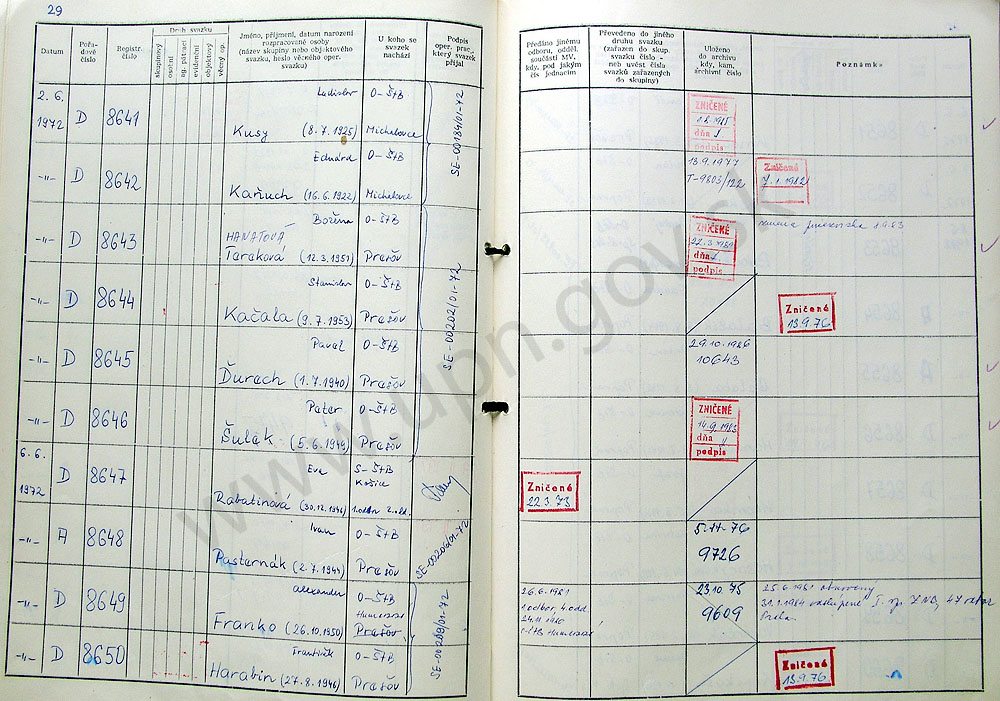 29
Datum
Pořa-
dové
číslo
Registr.
číslo
Druh svazku
skupinový
osobní
ag. pátrací
evidenční
objektový
věcný op.
Jméno, příjmení, datum narození
rozpracované osoby
(název skupiny nebo objektového
svazku, heslo věcného oper.
svazku)
U koho se
svazek
nachází
Podpis
oper. prac.
který svazek
přijal
Předáno jinému
odboru, odděl.
součásti MV,
kdy, pod jakým
čís jednacím
Převedeno do jiného
druhu svazku
(zařazen do skup.
svazku číslo -
neb uvést čísla
svazků zařazených
do skupiny)
Uloženo
do archivu
kdy, kam,
archivní číslo
Poznámka
2. 6.
1972 D 8641
Ladislav
Kusy (8. 7. 1925)
O-ŠtB
Michalovce
SE-00184/01-72
ZNIČENÉ
dňa
podpis
-"- D 8642
Eduard
Kaňuch (16. 6. 1922)
O-ŠtB
Michalovce
13.9.1977
T-9803/122
Zničené
7.1.1982
-"- D 8643
Božena
HANATOVÁ
Teraková (12. 3. 1951)
O-ŠtB
Prešov
SE-00202/01-72
ZNIČENÉ
dňa
podpis
-"- D 8644
Stanislav
Kačala (9. 7. 1953)
O-ŠtB
Prešov
Zničené
13.9.76
-"- D 8645
Pavel
Ďurech (1. 7. 1940)
O-ŠtB
Prešov
29.10.1986
10643
-"- D 8646
Peter
Šulak (5. 6. 1949)
O-ŠtB
Prešov
ZNIČENÉ
14.9.1983
dňa
podpis
6. 6.
1972 D 8647
Eva
Rabatinová (30.12.1946)
S-ŠtB
Košice
1.odbor 2.odd.
Zničené
22.3.73
-"- A 8648
Ivan
Pasternák (2. 7. 1944)
O-ŠtB
Prešov
SE-00206/01-72
5.11.76
9726
-"- D 8649
Alexander
Franko (26.10.1950)
O-ŠtB
Humenné
Prešov
SE-00209/01-72
26.6.1981
1.odbor, 4.odd
24.11.1980
23.10.75
9609
25.6.1981 obnovený
-"- D 8650
František
Harabin (27. 8. 1946)
O-ŠtB
Prešov
Zničené
13.9.76
www.upn.gov.sk